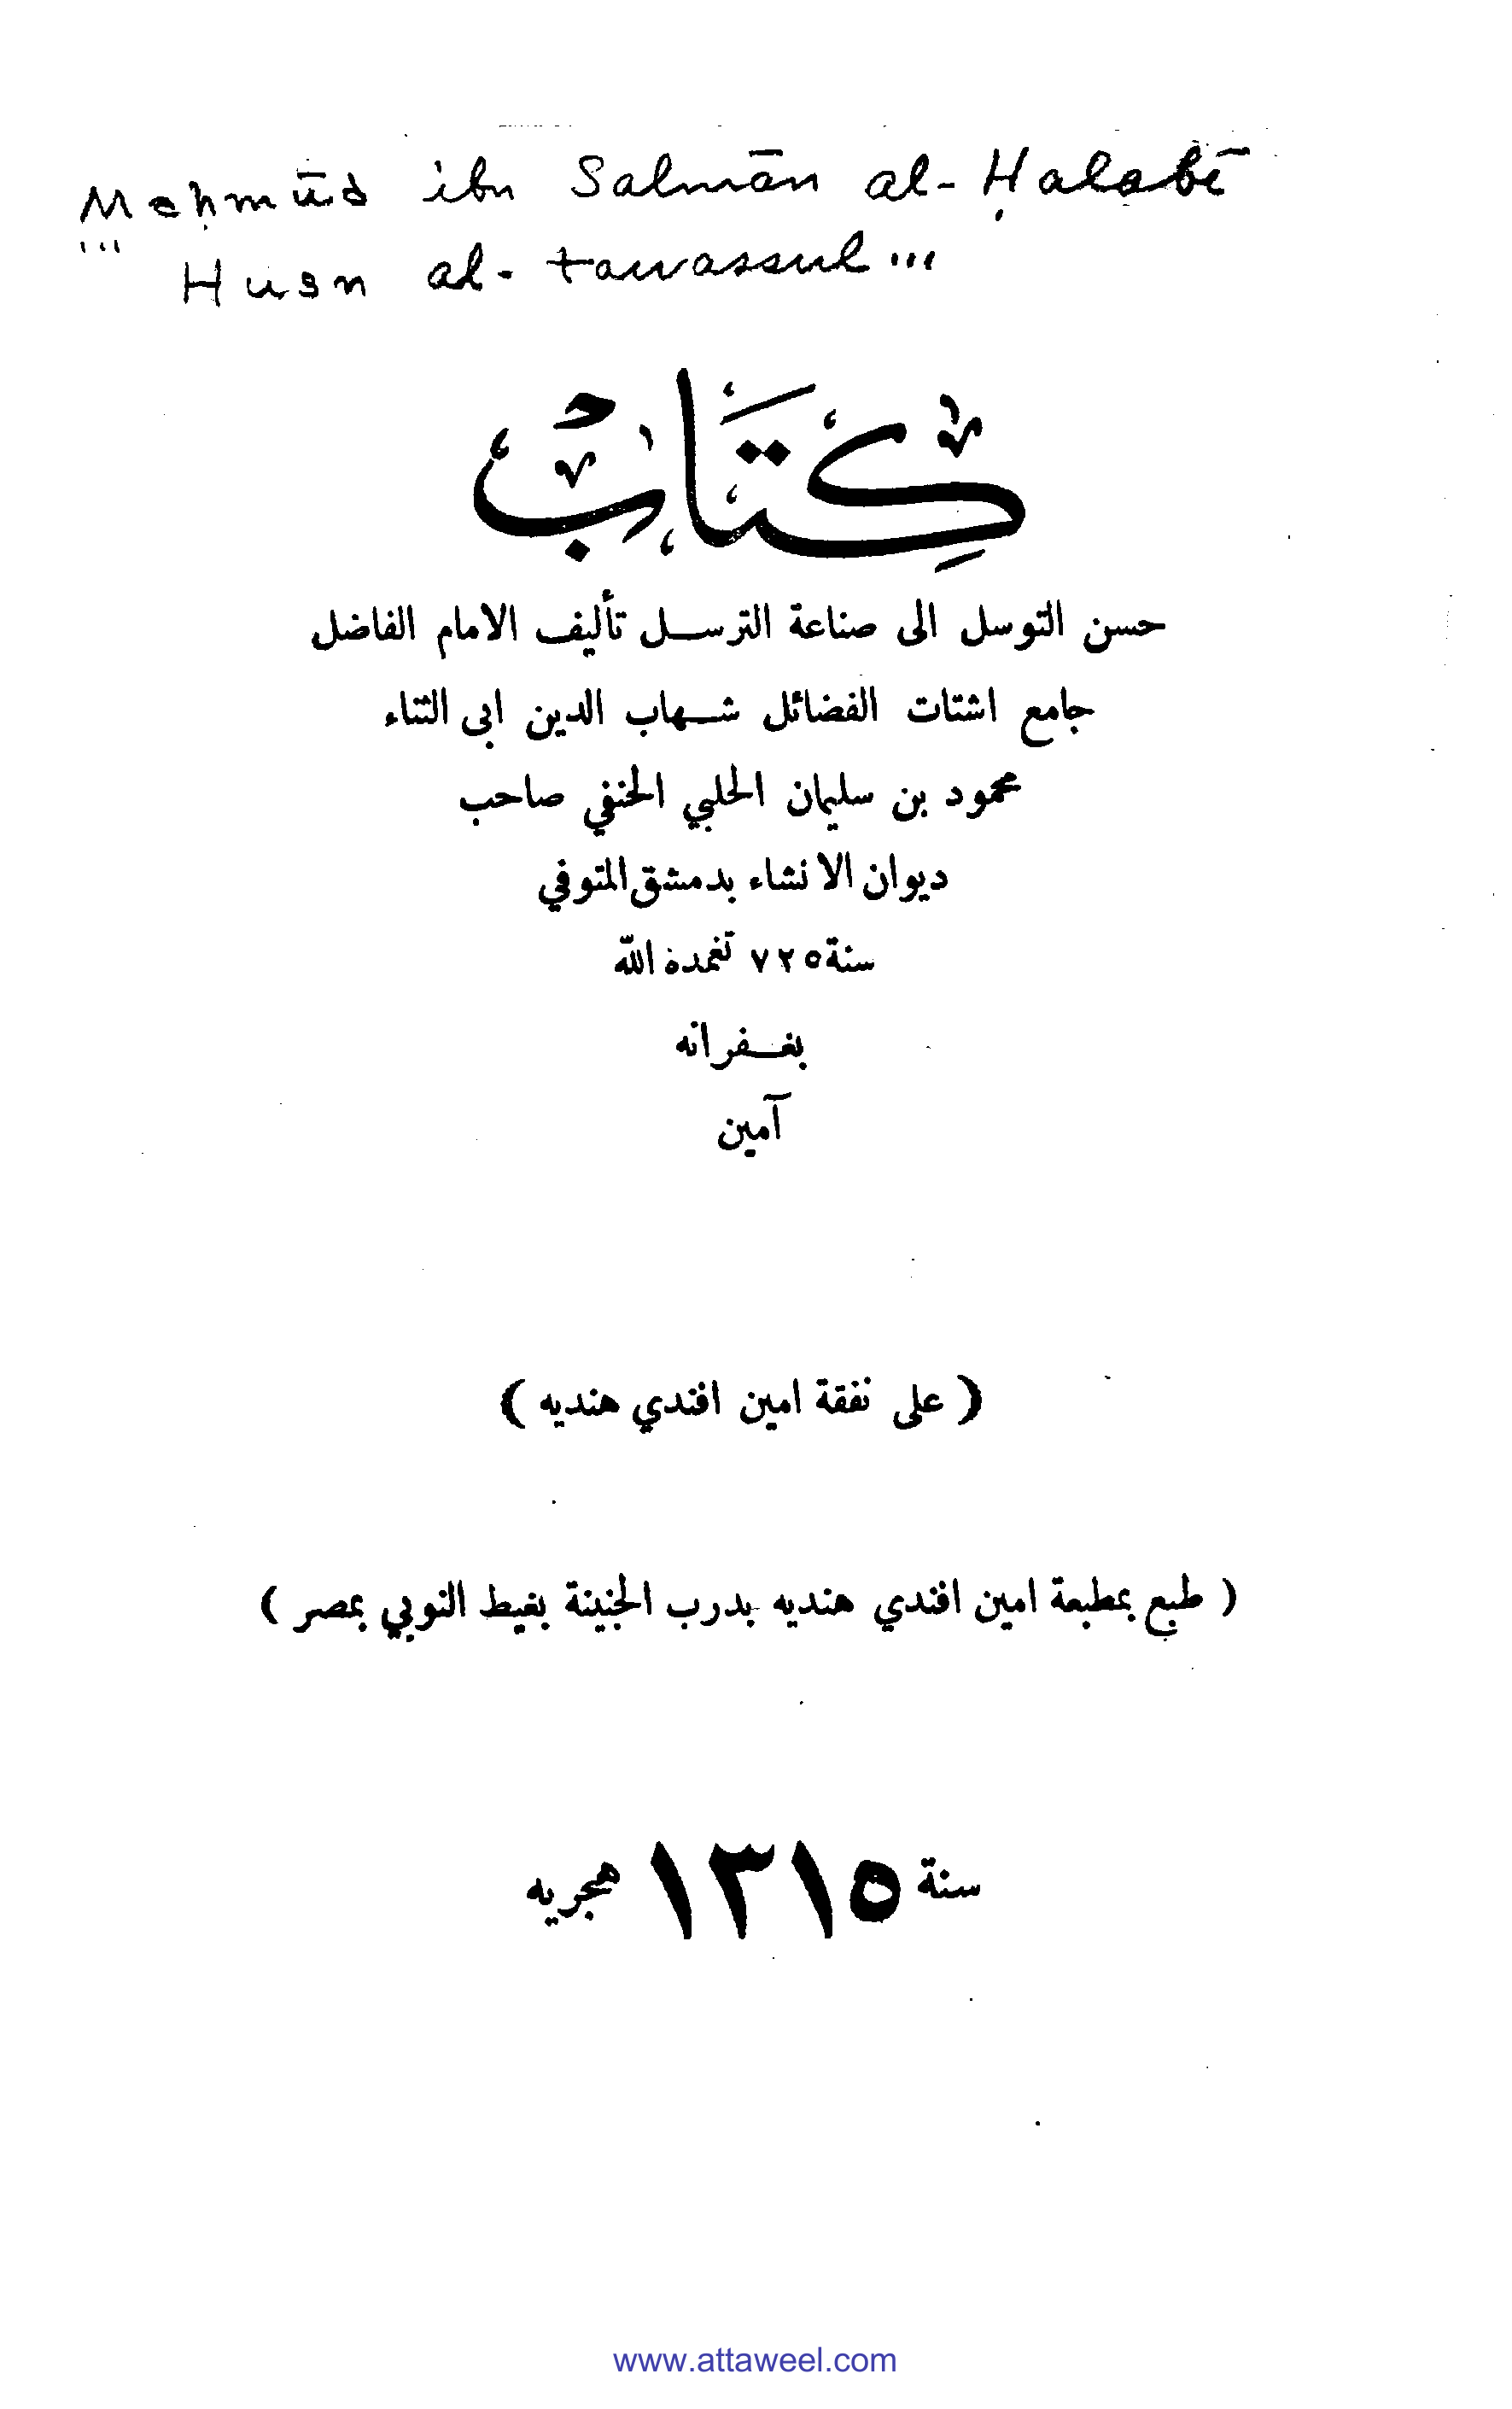 Maḥmūd ibn Salmān al-Ḥalabī
... Husn al-tawassul ...
كِتَابُ
حسن التوسل الى صناعة الترسل تأليف الامام الفاضل
جامع اشتات الفضائل شهاب الدين ابى الثناء
محمود بن سليمان الحلبي الحنفي صاحب
ديوان الانشاء بدمشق المتوفي
سنة ٧٢٥ تغمده الله
بغفرانه
آمين
( على نفقة امين افندي هنديه )
( طبع بمطبعة امين افندي هنديه بدرب الجنينة بغيط النوبي بمصر )
سنة ١٣١٥ هجريه
www.attaweel.com